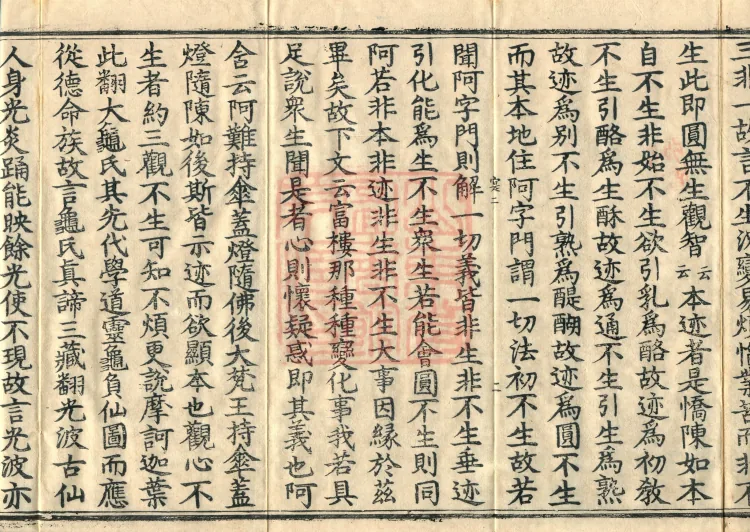 三非一故言不生變易煩惱業苦而非不
生此即圓無生觀智云云本迹者是憍陳如本
自不生非始不生欲引乳爲酪故迹爲初教
不生引酪爲生酥故迹爲通不生引生爲熟
故迹爲別不生引熟爲醍醐故迹爲圓不生
而其本地住阿字門謂一切法初不生故若
聞阿字門則解一切義皆非生非不生垂迹
引化能爲生不生衆生若能會圓不生則同
阿若非本非迹非生非不生大事因緣於茲
畢矣故下文云富樓那種種變化事我若具
足說衆生聞是者心則懷疑惑即其義也阿
含云阿難持傘蓋燈隨佛後大梵王持傘蓋
燈隨陳如後斯皆示迹而欲顯本也觀心不
生者約三觀不生可知不煩更說摩訶迦葉
此翻大龜氏其先代學道靈龜負仙圖而應
從德命族故言龜氏真諦三藏翻光波古仙
人身光炎踊能映餘光使不現故言光波亦